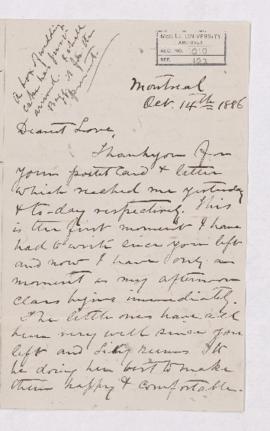 A box of wedding
cake has just
arrived. I shall
McGILL UNIVERSITY
ARCHIVES
ACC. NO.
REF.
Montreal
Oct. 14th 1886
Dearest Love,
Thankyou for
your postcard & letter
which reached me yesterday
& to-day respectively. This
is the first moment I have
had to write since you left
and now I have only a
moment as my afternoon
class begins immediately.
The little ones have all
been very well since you
left and seems to
be doing her best to make
them happy & comfortable.